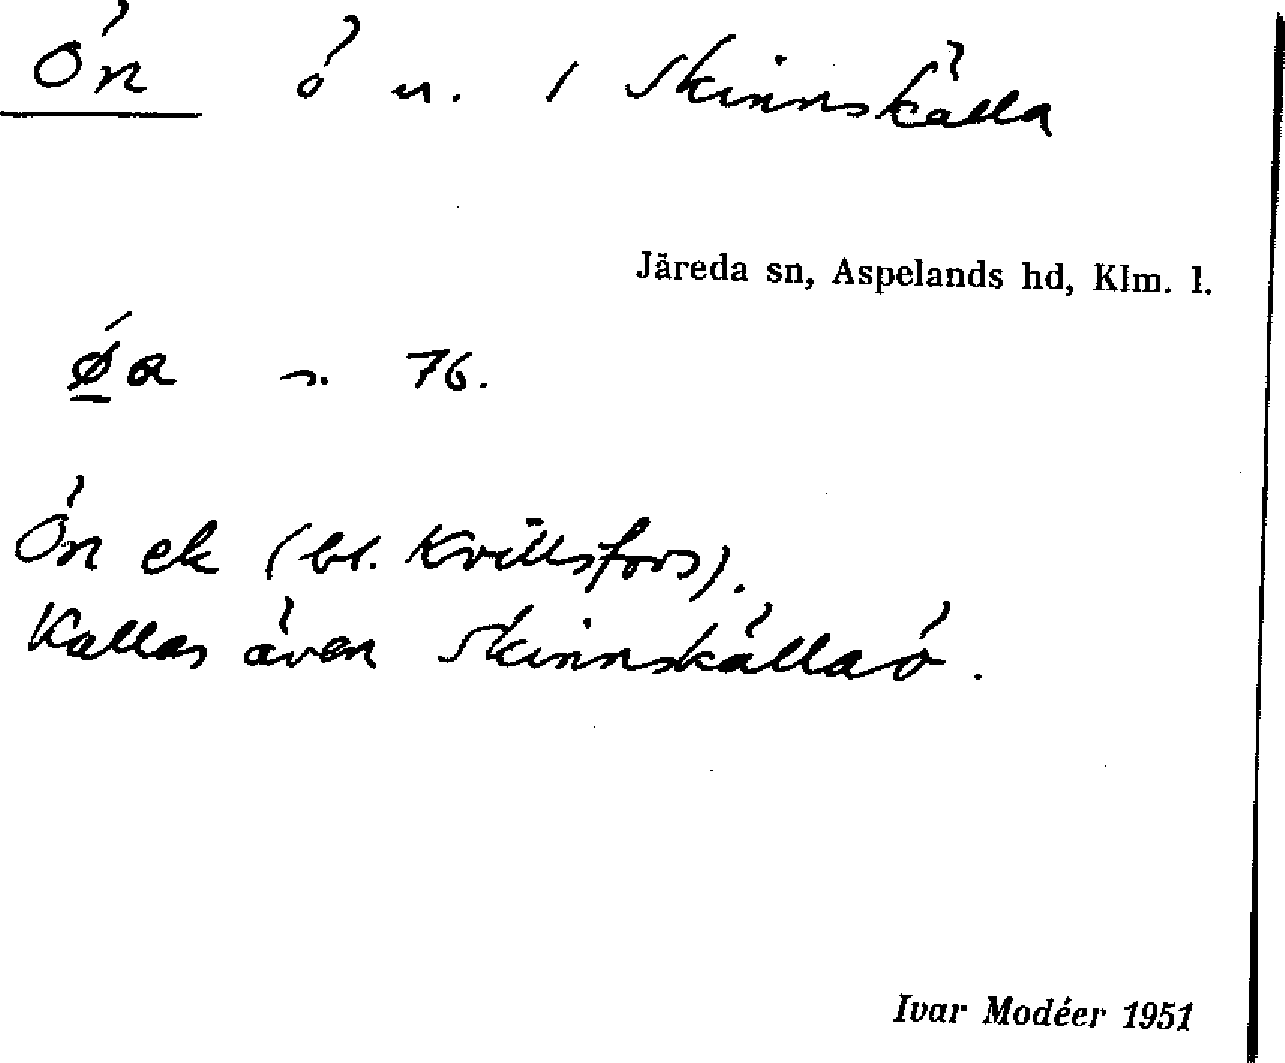 Ön ö u. i Skinnskälla
Järeda sn, Aspelands hd, Klm. l.
n. 76.
Ön ek (bl. Kvillsfors).
Kallas även Skinnskällaö.
Ivar Modéer 1951